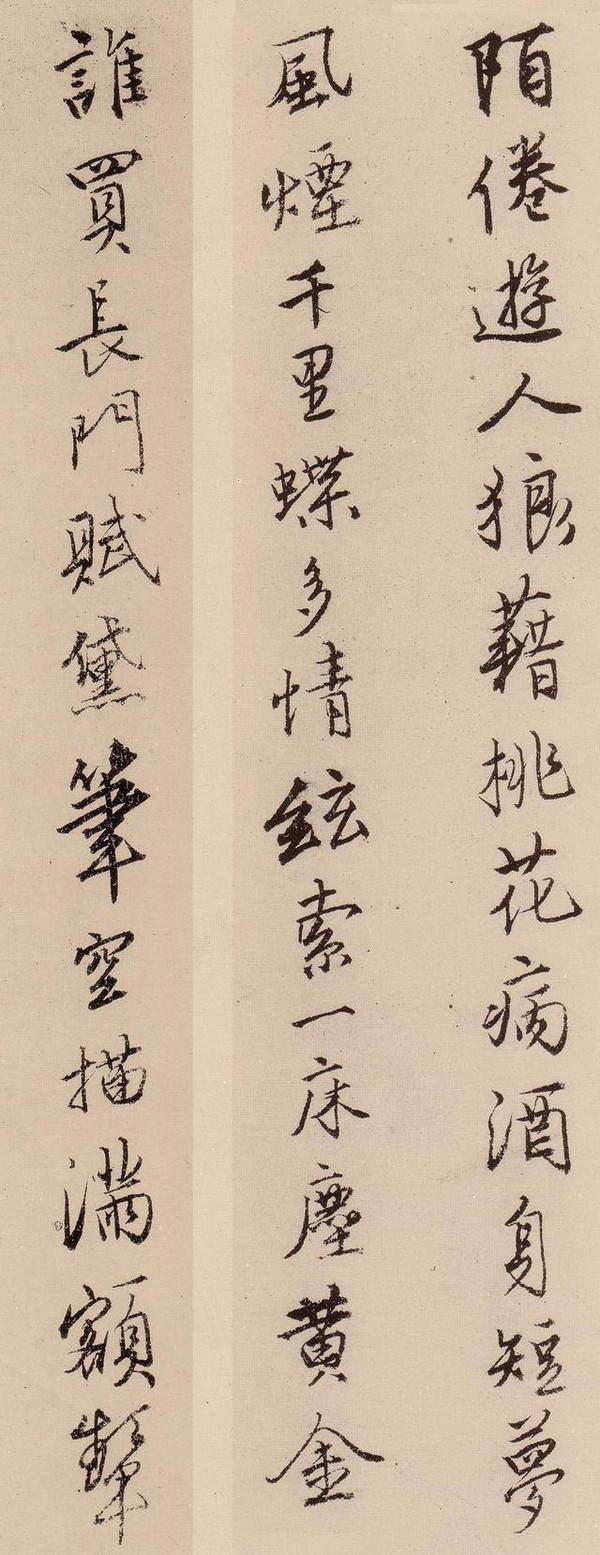 陌倦遊人狼藉桃花病酒身短夢
風煙千里蝶多情鉉索一床塵黃金
誰買長門賦黛筆空描滿額顰